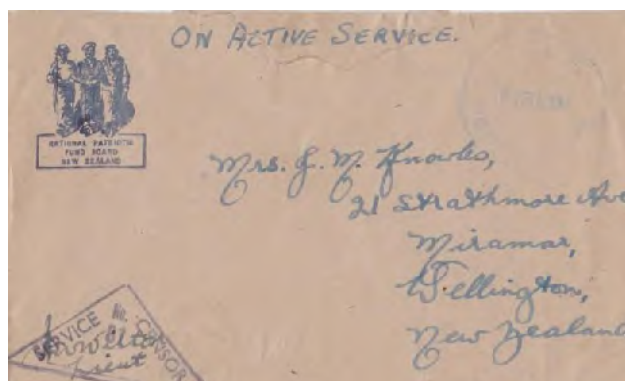 ON ACTIVE SERVICE.
NATIONAL PATRIOTIC
FUND BOARD
NEW ZEALAND
Mrs. J. M. Knowles,
21 Strathmore Ave
Miramar,
Wellington,
New Zealand
SERVICE No. CENSOR
Lieut